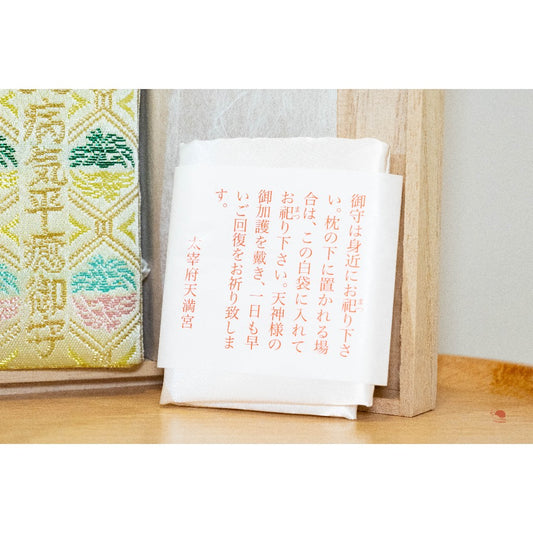 病気平癒御守
御守は身近にお祀り下さ
い。枕の下に置かれる場
合は、この白袋に入れて
お祀り下さい。天神様の
御加護を戴き、一日も早
いご回復をお祈り致しま
す。
太宰府天満宮